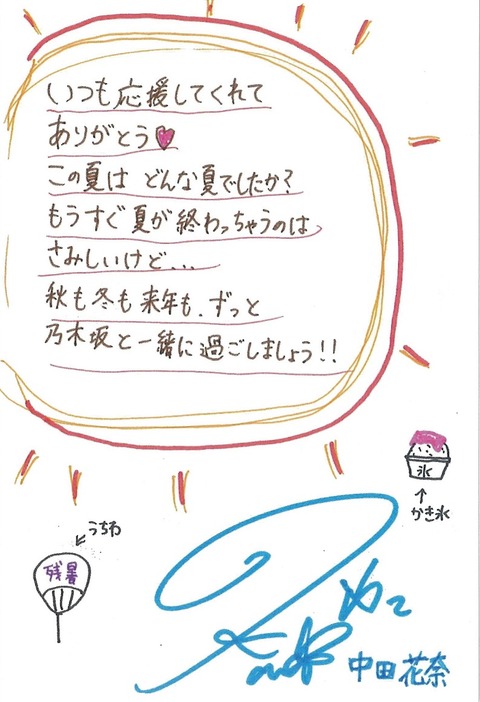 いつも応援してくれて
ありがとう♥
この夏は どんな夏でしたか?
もうすぐ夏が終わっちゃうのは
さみしいけど...
秋も冬も来年も、ずっと
乃木坂と一緒に過ごしましょう!!
氷
↑
かき氷
うちわ
残暑
中田花奈